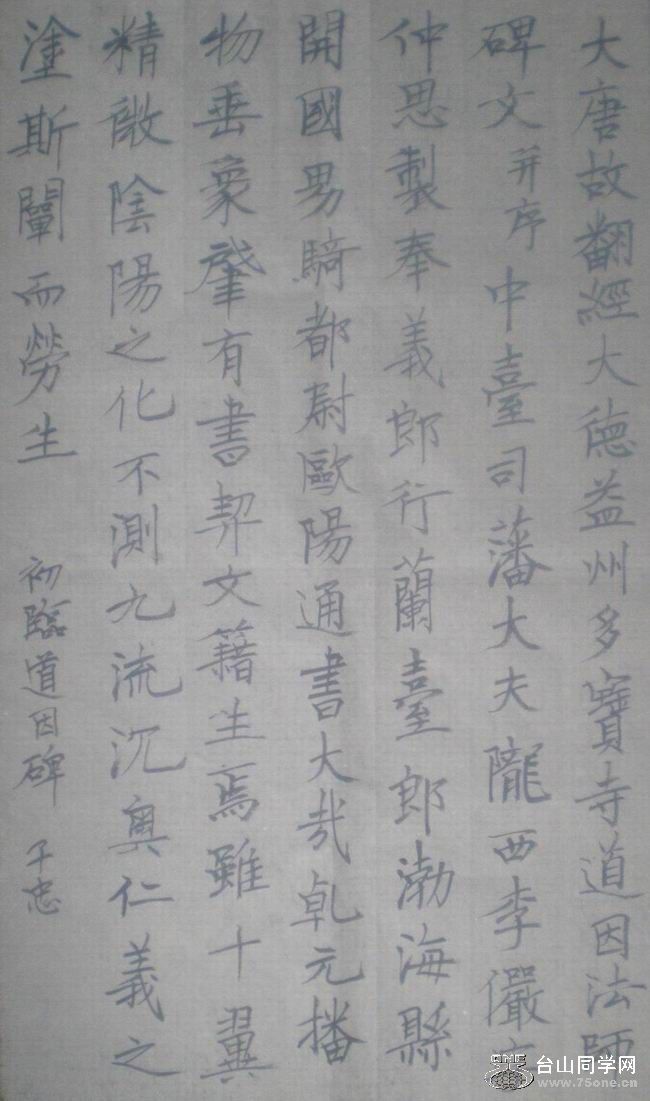 大唐故翻經大德益州多寶寺道因法師
碑文并序中臺司藩大夫隴西李儼
仲思製奉義郎行蘭臺郎渤海縣
開國男騎都尉歐陽通書大哉乹元播
物垂象肇有書契文籍生焉雖十翼
精微陰陽之化不測九流沉奧仁義之
塗斯闡而勞生
初臨道因碑 子忠
ONE 台山同学网
www.75one.cn